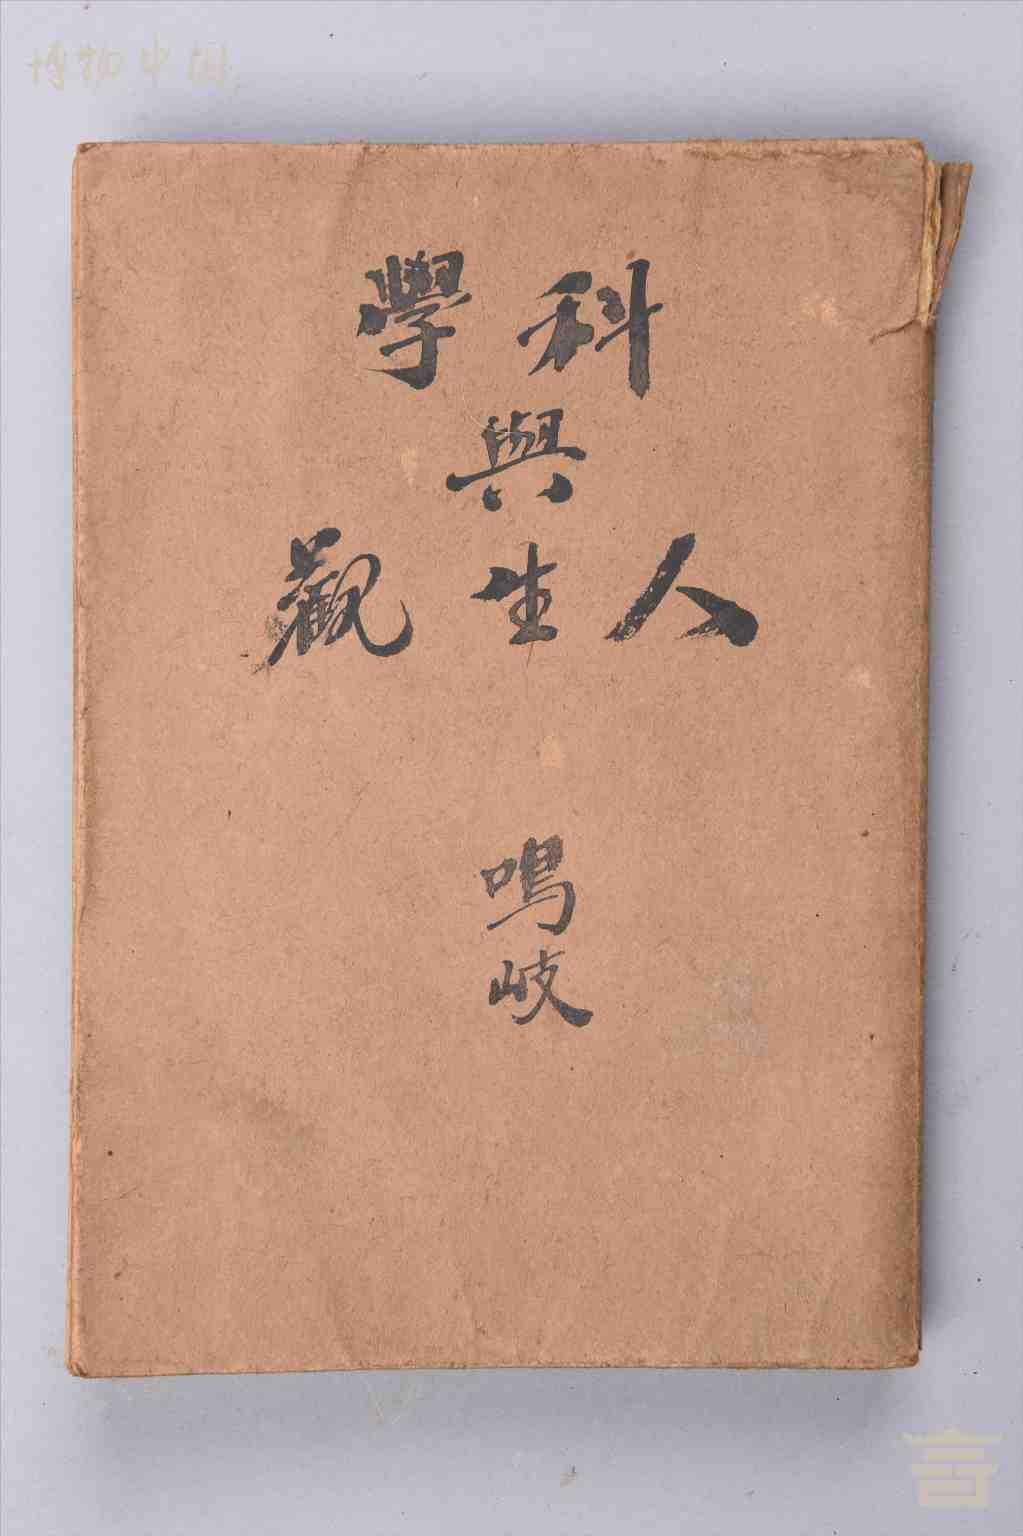 博物中国
科學
與
人生觀
鳴岐